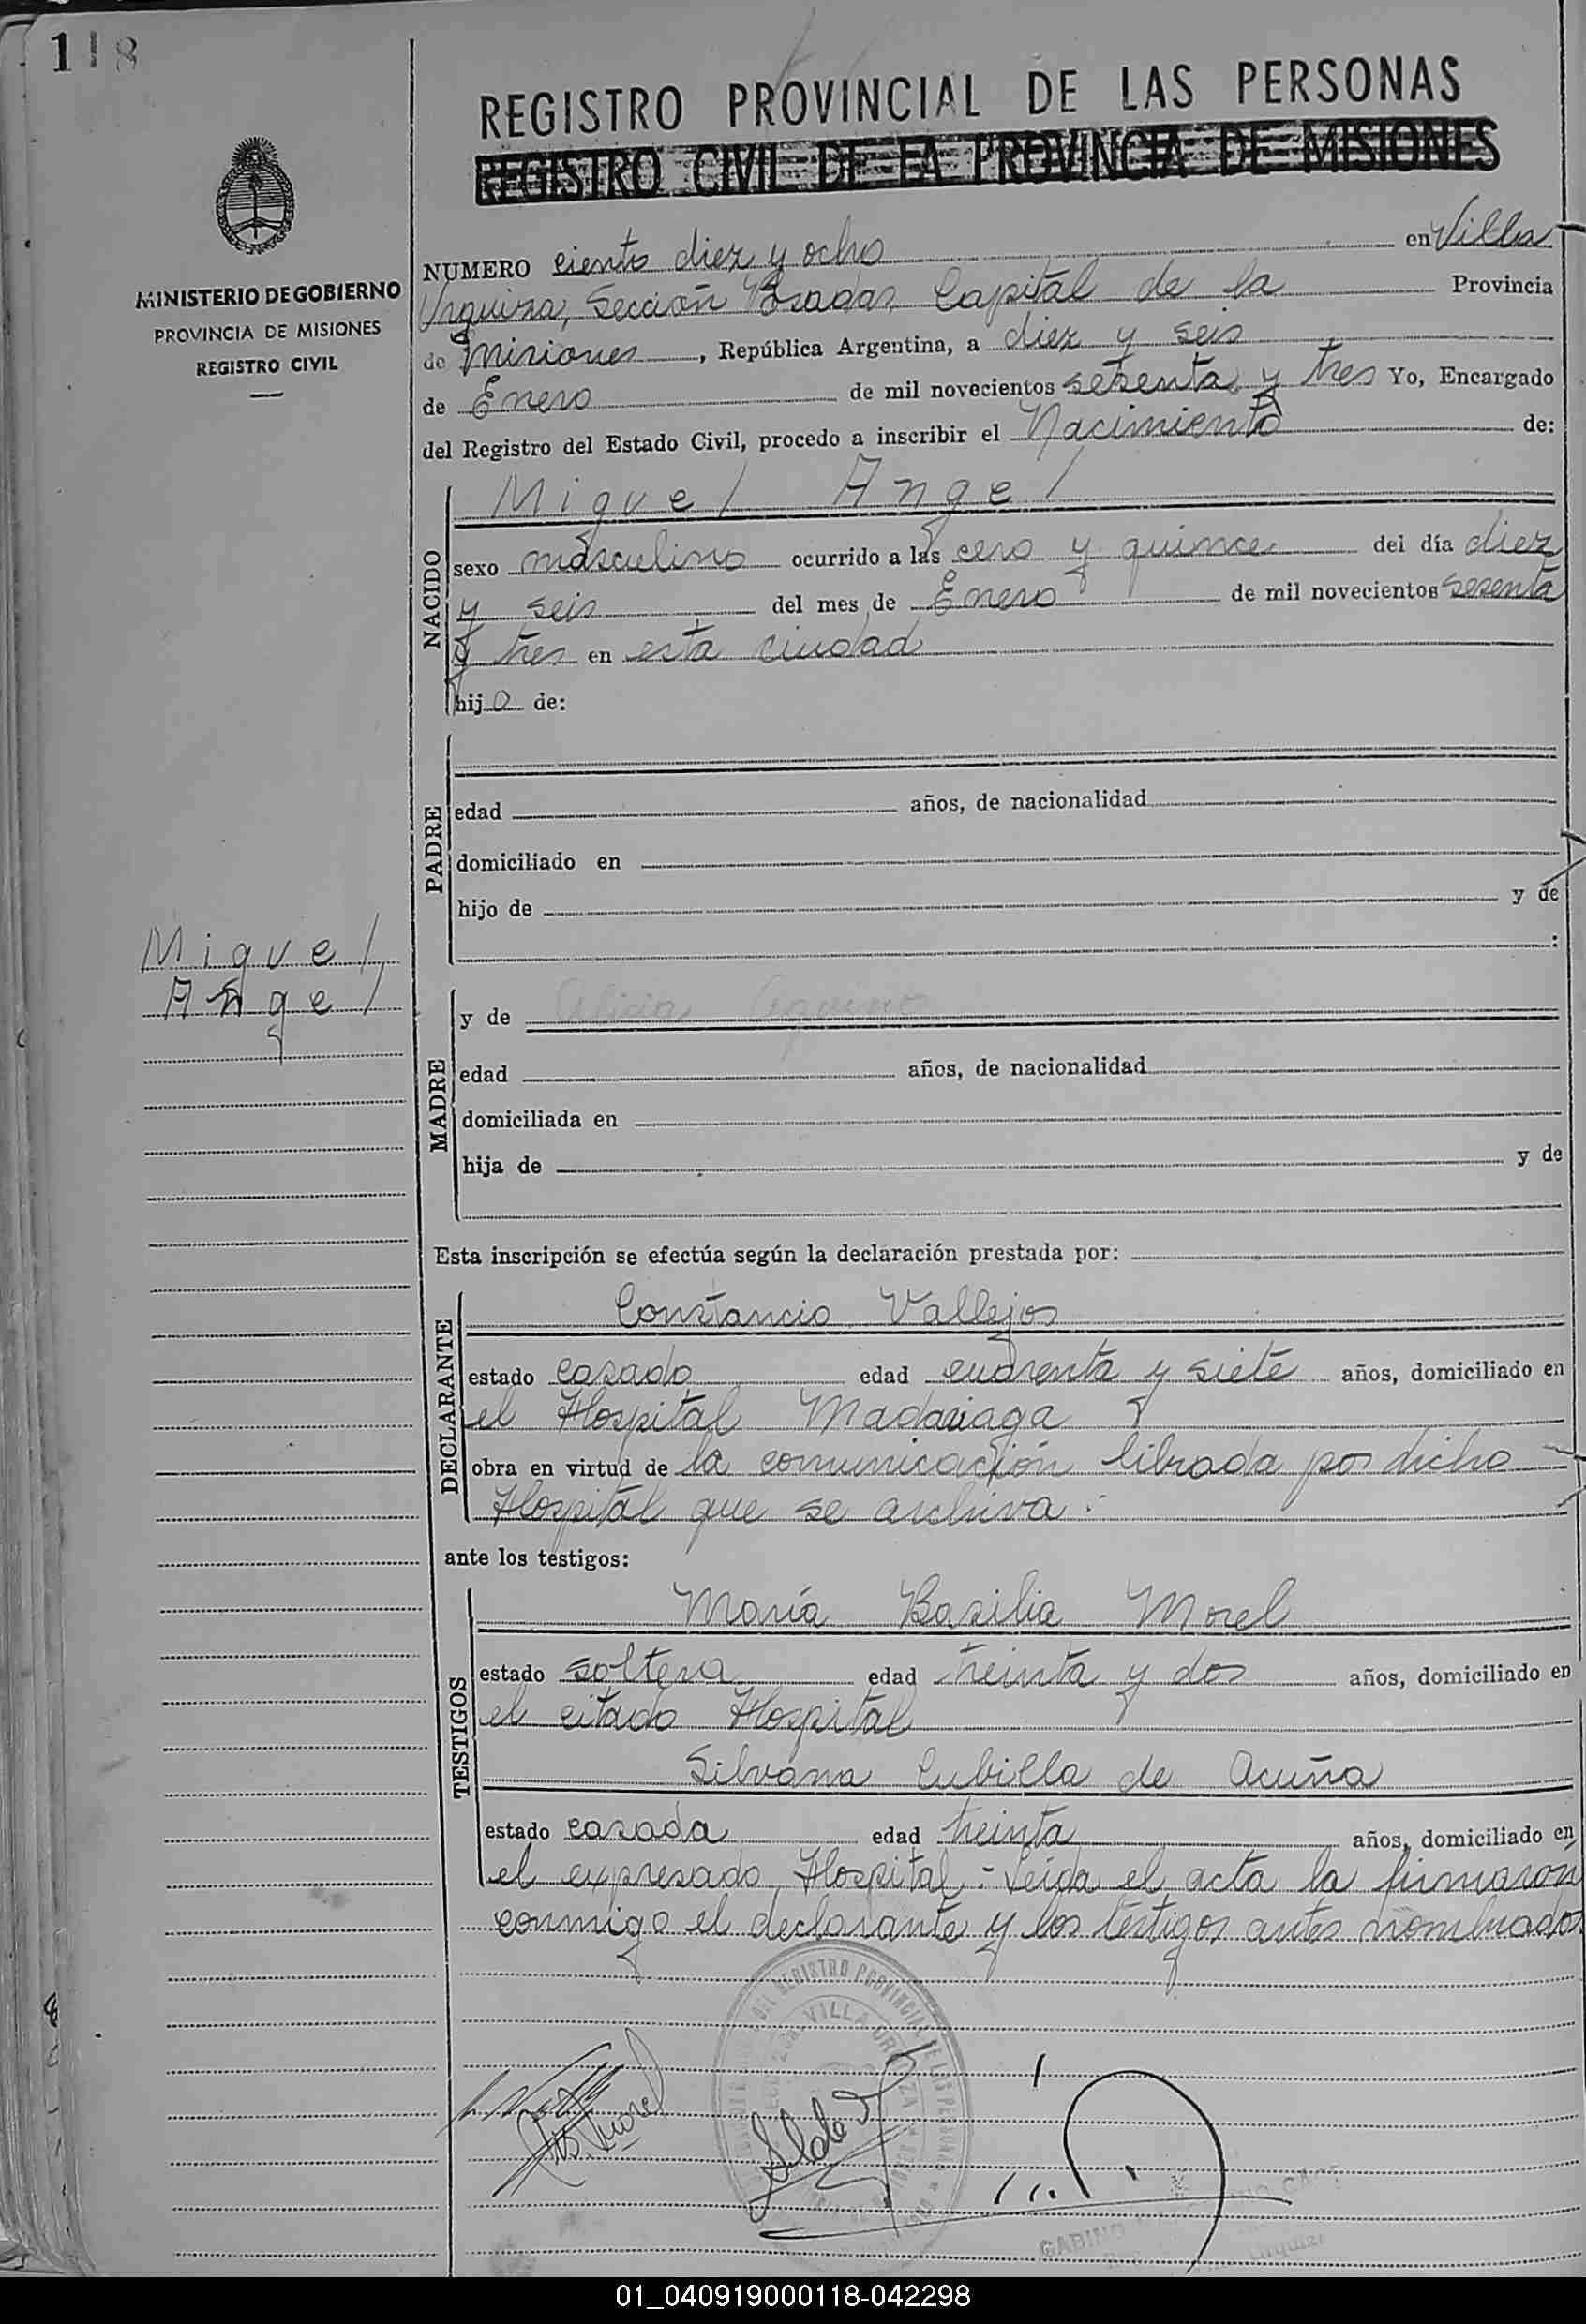 118
REGISTRO PROVINCIAL DE LAS PERSONAS
REGISTRO CIVIL DE LA PROVINCIA DE MISIONES
MINISTERIO DE GOBIERNO
PROVINCIA DE MISIONES
REGISTRO CIVIL
NUMERO ciento diez y ocho en Villa
Urquiza, Sección Posadas, Capital de la Provincia
de Misiones, República Argentina, a diez y seis
de Enero de mil novecientos sesenta y tres Yo, Encargado
del Registro del Estado Civil, procedo a inscribir el Nacimiento de:
NACIDO
Miguel Angel
sexo masculino ocurrido a las cero y quince del día diez
y seis del mes de Enero de mil novecientos sesenta
y tres en esta ciudad
hijo de:
PADRE
edad años, de nacionalidad
domiciliado en
hijo de y de
:
Miguel
Angel
MADRE
y de Alicia Aquino
edad años, de nacionalidad
domiciliada en
hija de y de
Esta inscripción se efectúa según la declaración prestada por:
DECLARANTE
Constancio Vallejos
estado casado edad cuarenta y siete años, domiciliado en
el Hospital Madariaga
obra en virtud de la comunicación librada por dicho
Hospital que se archiva.-
ante los testigos:
TESTIGOS
María Basilia Morel
estado soltera edad treinta y dos años, domiciliado en
el citado Hospital
Silvana Cubilla de Acuña
estado casada edad treinta años, domiciliado en
el expresado Hospital.- Leída el acta la firmaron
conmigo el declarante y los testigos antes nombrados
REGISTRO PROVINCIAL DE LAS PERSONAS
VILLA URQUIZA
GABINO
Urquiza
01_040919000118-042298